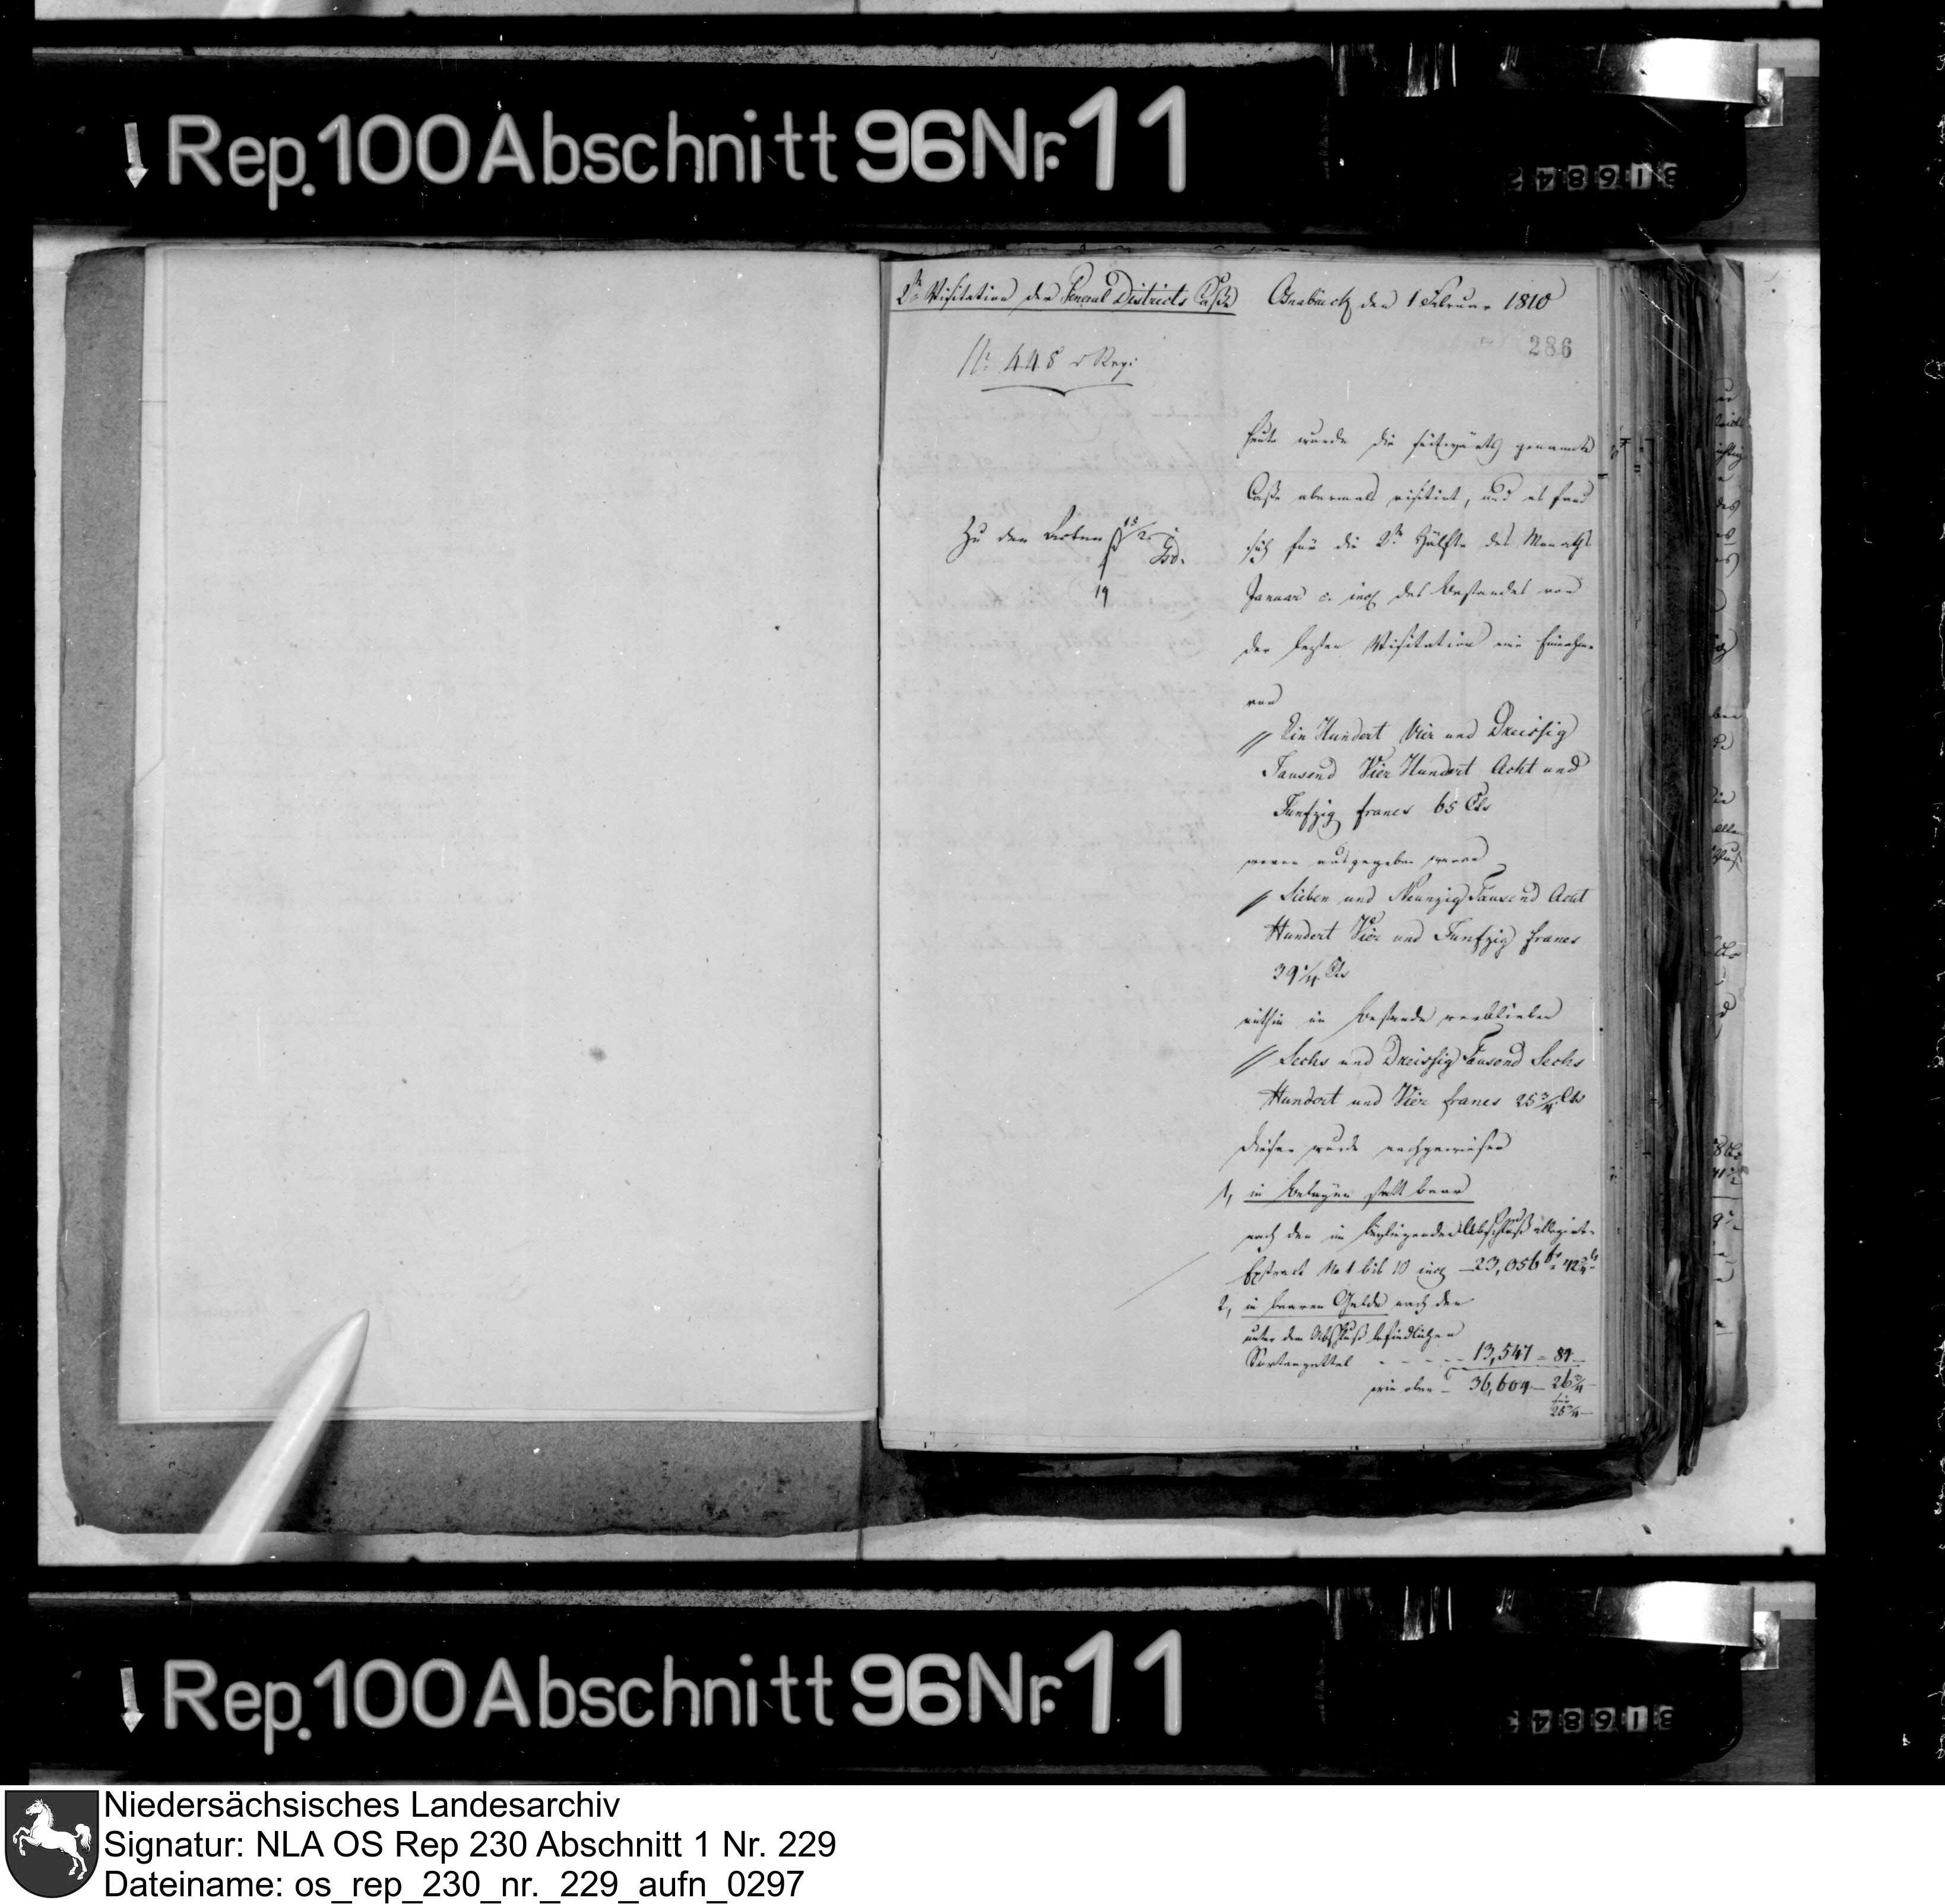 Rep. 100 Abschnitt 96 Nr. 11
316842
2te Visitation der General Districts Casse
Osnabrück den 1 Februar 1810
286
No 448 Regi
Heute wurde die seitwärts genannte
Casse abermals visitirt, und es fand
Zu den Acten
sich für die 2te Hälfte des Monaths
19
Januar c. incl. des Bestandes von
der letzten Visitation eine Einnahme
von
// Ein Hundert Vier und Dreissig
Tausend Vier Hundert Acht und
Funfzig francs 65 Cts
wovon ausgegeben waren
// Sieben und Neunzig Tausend Acht
Hundert Vier und Funfzig francs
39 1/4 Cts
mithin im Bestande verblieben
// Sechs und Dreissig Tausend Sechs
Hundert und Vier francs 25 3/4 Cts
Dieser wurde nachgewiesen
1, in Belegen statt baar
nach den im beyliegenden Abschluß allegirten
No 1 bis 10 incl - 23,056 fr 42 3/4 Cts
2, in baaren Gelde nach dem
unter dem Abschluß befindlichen
Sortenzettel - - - - - 13,547 = 84 -
wie oben - 36,604 - 26 3/4 -
25 3/4 -
Rep. 100 Abschnitt 96 Nr. 11
Niedersächsisches Landesarchiv
Signatur: NLA OS Rep 230 Abschnitt 1 Nr. 229
Dateiname: os_rep_230_nr._229_aufn_0297